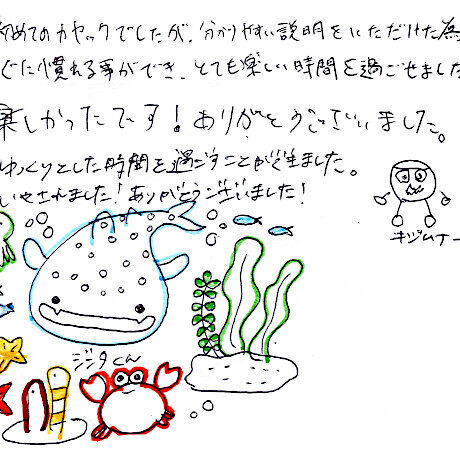 初めてのカヤックでしたが、分かりやすい説明をいただけた為
ぐに慣れる事ができ、とても楽しい時間を過ごせました
楽しかったです！ありがとうございました。
ゆっくりとした時間を過ごすことができました。
いやされました！ありがとうございました！
キジムナー
ジンタくん